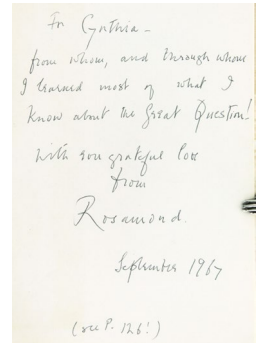 For Cynthia –
from whom, and through whom
I learned most of what I
know about the Great Question!
With grateful love
from
Rosamond.
September 1967
(see P. 126!)